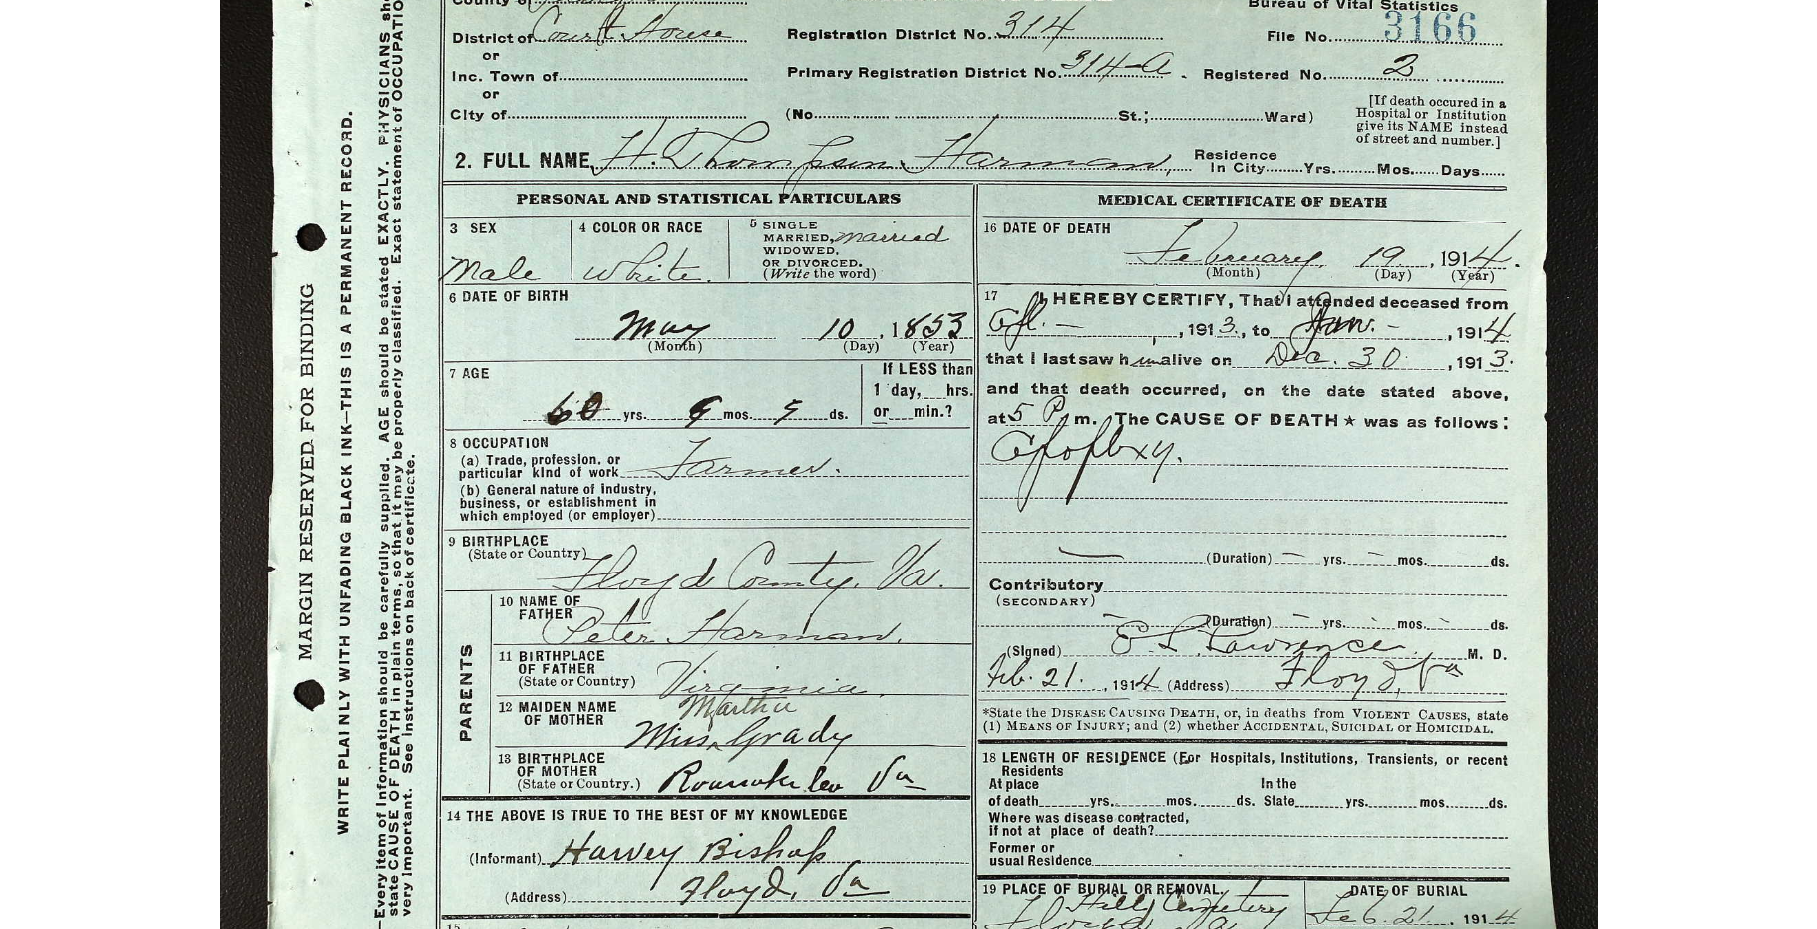 Bureau of Vital Statistics
District of Court House
Registration District No. 314
File No. 3166
or
Inc. Town of
Primary Registration District No. 314-A.
Registered No. 2
or
City of
(No. St.; Ward)
[If death occured in a
Hospital or Institution
give its NAME instead
of street and number.]
2. FULL NAME H. Thompson Harman,
Residence
In City Yrs. Mos. Days
PERSONAL AND STATISTICAL PARTICULARS
3 SEX
Male
4 COLOR OR RACE
White.
5 SINGLE
MARRIED, married
WIDOWED,
OR DIVORCED.
(Write the word)
6 DATE OF BIRTH
May 10, 1853
(Month) (Day) (Year)
7 AGE
60 yrs. 9 mos. 9 ds.
If LESS than
1 day, hrs.
or min.?
8 OCCUPATION
(a) Trade, profession, or
particular kind of work Farmer.
(b) General nature of industry,
business, or establishment in
which employed (or employer)
9 BIRTHPLACE
(State or Country)
Floyd County, Va.
PARENTS
10 NAME OF
FATHER
Peter Harman.
11 BIRTHPLACE
OF FATHER
(State or Country)
Virginia.
12 MAIDEN NAME
OF MOTHER
Martha
Miss Grady
13 BIRTHPLACE
OF MOTHER
(State or Country.) Roanoke Co Va
14 THE ABOVE IS TRUE TO THE BEST OF MY KNOWLEDGE
(Informant) Harvey Bishop
(Address) Floyd, Va
15
MEDICAL CERTIFICATE OF DEATH
16 DATE OF DEATH
February 19, 1914.
(Month) (Day) (Year)
17 I HEREBY CERTIFY, That I attended deceased from
, 1913, to Jan. -, 1914
that I last saw him alive on Dec. 30, 1913.
and that death occurred, on the date stated above,
at 5 P m. The CAUSE OF DEATH ★ was as follows:
Apoplexy.
(Duration) yrs. mos. ds.
Contributory
(SECONDARY)
(Duration) yrs. mos. ds.
(Signed) E L Lawrence M. D.
Feb. 21., 1914 (Address) Floyd, Va
*State the DISEASE CAUSING DEATH, or, in deaths from VIOLENT CAUSES, state
(1) MEANS OF INJURY; and (2) whether ACCIDENTAL, SUICIDAL or HOMICIDAL.
18 LENGTH OF RESIDENCE (For Hospitals, Institutions, Transients, or recent
Residents
At place In the
of death yrs. mos. ds. State yrs. mos. ds.
Where was disease contracted,
if not at place of death?
Former or
usual Residence
19 PLACE OF BURIAL OR REMOVAL,
Cemetery
Floyd Va
DATE OF BURIAL
Feb. 21. 1914
MARGIN RESERVED FOR BINDING
WRITE PLAINLY WITH UNFADING BLACK INK—THIS IS A PERMANENT RECORD.
—Every item of information should be carefully supplied. AGE should be stated EXACTLY. PHYSICIANS
state CAUSE OF DEATH in plain terms, so that it may be properly classified. Exact statement of OCCUPATIO
very important. See instructions on back of certificate.